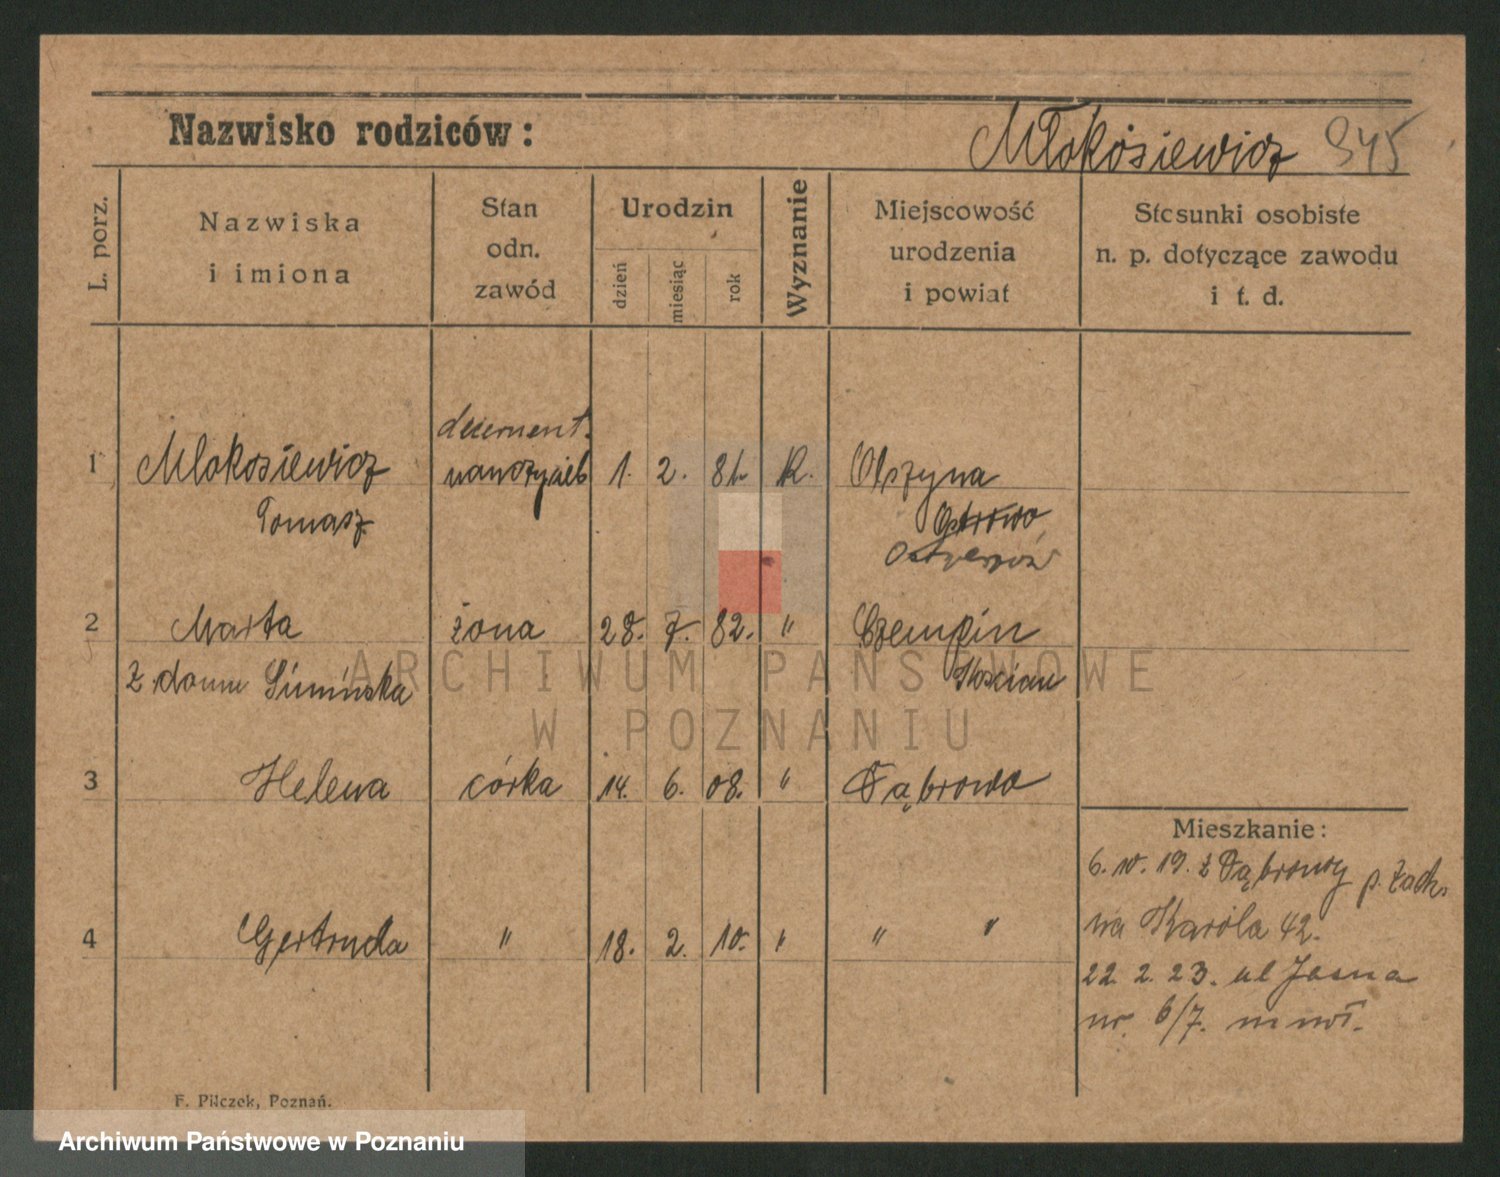 Nazwisko rodziców: Młokosiewicz 945
L. porz.
Nazwiska i imiona
Stan odn. zawód
Urodzin
dzień miesiąc rok
Wyznanie
Miejscowość urodzenia i powiat
Stosunki osobiste n. p. dotyczące zawodu i t. d.
decernent.
1 Młokosiewicz nauczyciel 1. 2. 81. R. Olszyna
Tomasz Ostrowo
Ostrzeszów
2 Marta żona 28. 7. 82. " Czempin
z domu Simińska Kościan
3 Helena córka 14. 6. 08. " Dąbrowa
Mieszkanie:
6. 10. 19. z Dąbrowy p.
4 Gertruda " 18. 2. 10. " " "
na Karola 42.
22. 2. 23. ul Jasna
nr. 6/7.
F. Pilczek, Poznań.
ARCHIWUM PAŃSTWOWE
W POZNANIU
Archiwum Państwowe w Poznaniu